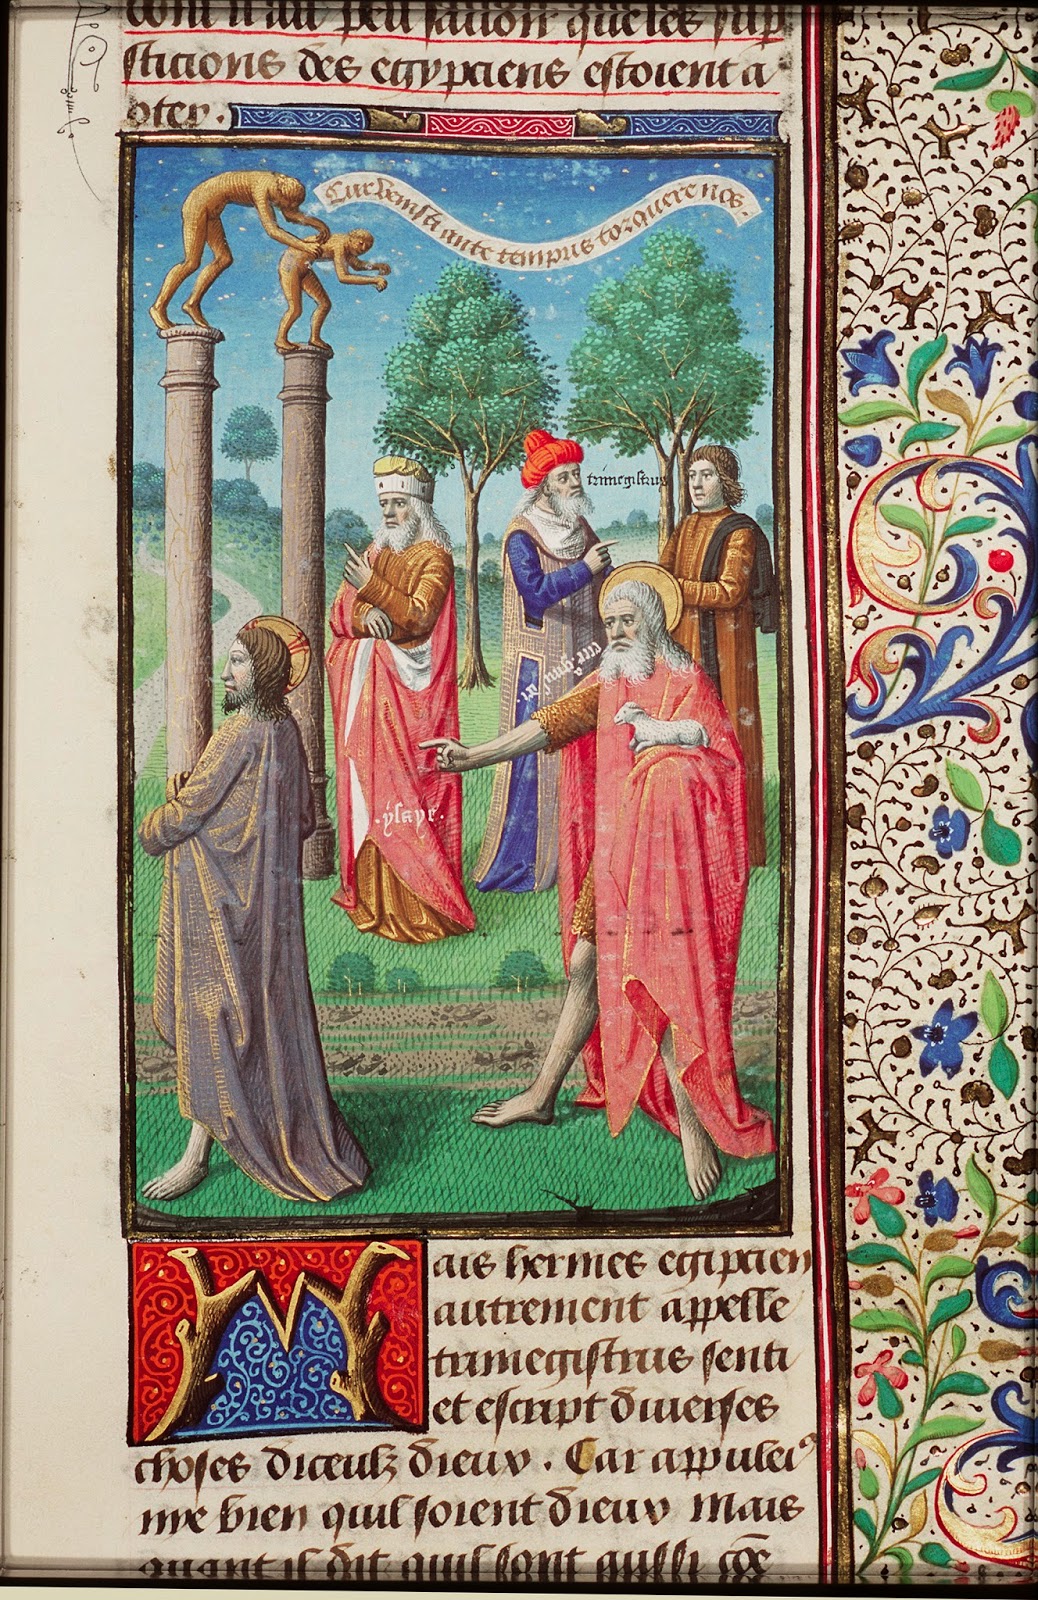 dont il dit peu savoir que les sup
sticions des egypciens estoient a
oster.
Cur venisti ante tempus torquere nos.
trimegistrus
ysaye.
ais hermes egipcien
autrement appelle
trimegistrus senti
et escript diverses
choses diceulz dieux. Car appulei⁹
nye bien quil soient dieux Mais
quant il dit quil sont aussi cõe